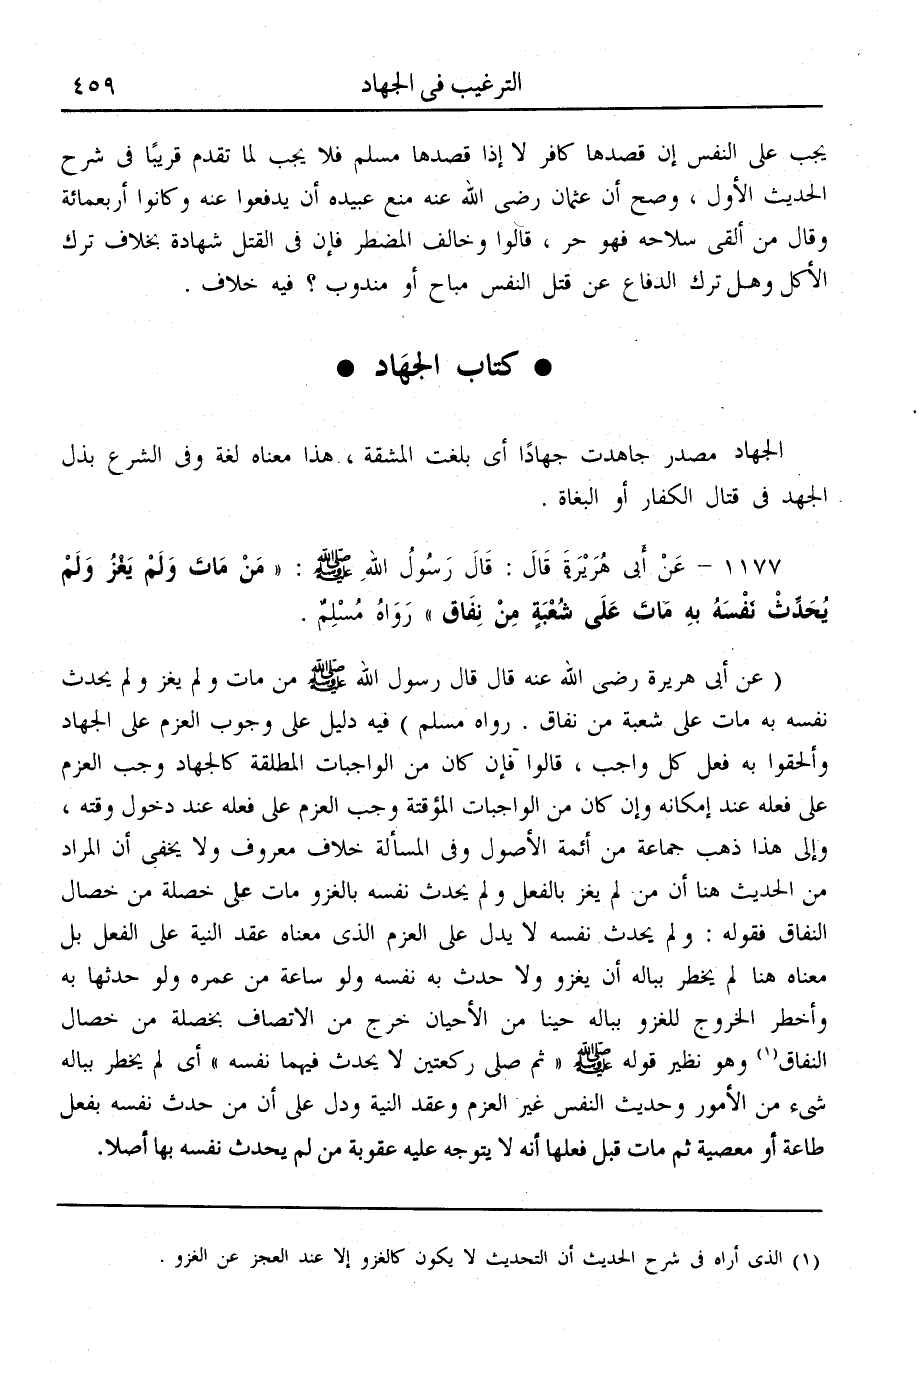 الترغيب فى الجهاد ٤٥٩
يجب على النفس إن قصدها كافر لا إذا قصدها مسلم فلا يجب لما تقدم قريبًا فى شرح
الحديث الأول ، وصح أن عثمان رضى الله عنه منع عبيده أن يدفعوا عنه وكانوا أربعمائة
وقال من ألقى سلاحه فهو حر ، قالوا وخالف المضطر فإن فى القتل شهادة بخلاف ترك
الأكل وهل ترك الدفاع عن قتل النفس مباح أو مندوب ؟ فيه خلاف .
● كتاب الجهَاد ●
الجهاد مصدر جاهدت جهادًا أى بلغت المشقة ، هذا معناه لغة وفى الشرع بذل
الجهد فى قتال الكفار أو البغاة .
١١٧٧ – عَنْ أَبى هُرَيْرَةَ قَالَ : قَالَ رَسُولُ اللهِ ﷺ : « مَنْ مَاتَ وَلَمْ يَغْزُ وَلَمْ
يُحَدِّثْ نَفْسَهُ بِهِ مَاتَ عَلَى شُعْبَةٍ مِنْ نِفَاق » رَوَاهُ مُسْلِمٌ .
( عن أبى هريرة رضى الله عنه قال قال رسول الله ﷺ من مات ولم يغز ولم يحدث
نفسه به مات على شعبة من نفاق . رواه مسلم ) فيه دليل على وجوب العزم على الجهاد
وألحقوا به فعل كل واجب ، قالوا فإن كان من الواجبات المطلقة كالجهاد وجب العزم
على فعله عند إمكانه وإن كان من الواجبات المؤقتة وجب العزم على فعله عند دخول وقته ،
وإلى هذا ذهب جماعة من أئمة الأصول وفى المسألة خلاف معروف ولا يخفى أن المراد
من الحديث هنا أن من لم يغز بالفعل ولم يحدث نفسه بالغزو مات على خصلة من خصال
النفاق فقوله : ولم يحدث نفسه لا يدل على العزم الذى معناه عقد النية على الفعل بل
معناه هنا لم يخطر بباله أن يغزو ولا حدث به نفسه ولو ساعة من عمره ولو حدثها به
وأخطر الخروج للغزو بباله حينا من الأحيان خرج من الاتصاف بخصلة من خصال
النفاق(١) وهو نظير قوله ﷺ « ثم صلى ركعتين لا يحدث فيهما نفسه » أى لم يخطر بباله
شىء من الأمور وحديث النفس غير العزم وعقد النية ودل على أن من حدث نفسه بفعل
طاعة أو معصية ثم مات قبل فعلها أنه لا يتوجه عليه عقوبة من لم يحدث نفسه بها أصلا.
(١) الذى أراه فى شرح الحديث أن التحديث لا يكون كالغزو إلا عند العجز عن الغزو .